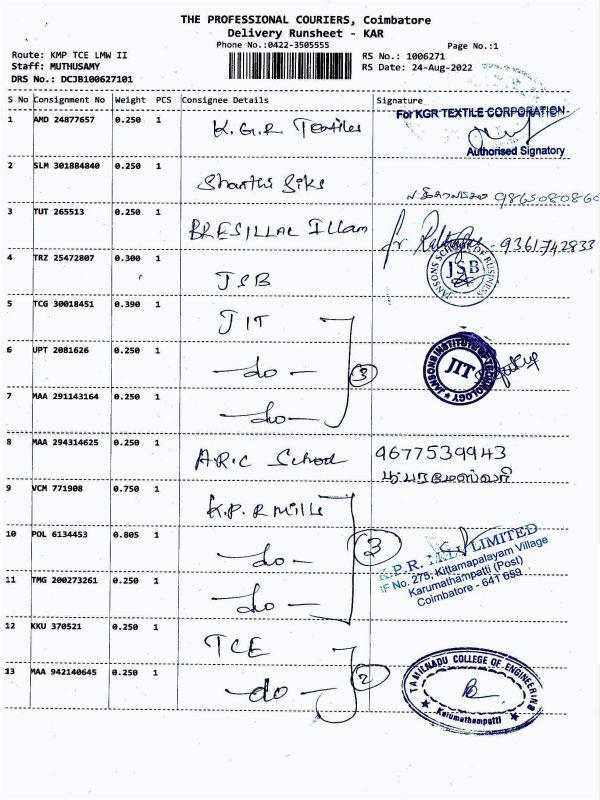 THE PROFESSIONAL COURIERS, Coimbatore
Delivery Runsheet - KAR
Phone No.:0422-3505555
Page No.:1
Route: KMP TCE LMW II
Staff: MUTHUSAMY
DRS No.: DCJB100627101
RS No.: 1006271
RS Date: 24-Aug-2022
S No Consignment No Weight PCS Consignee Details Signature
1 AMD 24877657 0.250 1 K.G.R Textiles For KGR TEXTILE CORPORATION
Authorised Signatory
2 SLM 301884840 0.250 1 Shanthi Siks 9865080860
3 TUT 265513 0.250 1 BRESILLAL Illam for - 9361742833
4 TRZ 25472807 0.300 1 JSB JANSONS SCHOOL OF BUSINESS JSB
5 TCG 30018451 0.390 1 JIT
6 UPT 2081626 0.250 1 -do- 3 JANSONS INSTITUTE OF TECHNOLOGY JIT
7 MAA 291143164 0.250 1 -do-
8 MAA 294314625 0.250 1 A.R.C School 9677539943
9 VCM 771908 0.750 1 K.P.R Mills
10 POL 6134453 0.805 1 -do- 3 K.P.R. MILL LIMITED
SF No. 275, Kittampalayam Village
Karumathampatti (Post)
Coimbatore - 641 659
11 TMG 200273261 0.250 1 -do-
12 KKU 370521 0.250 1 TCE
13 MAA 942140645 0.250 1 -do- 2 TAMILNADU COLLEGE OF ENGINEERING
Karumathampatti